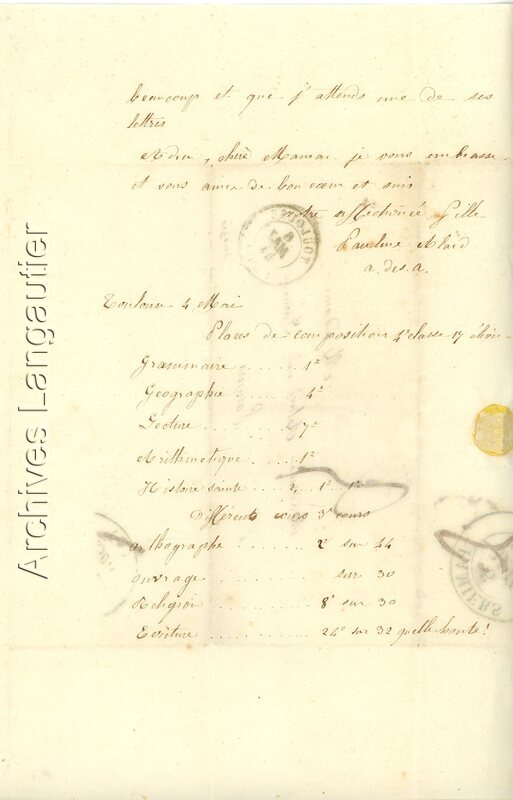 beaucoup et que j'attends une de ses
lettres
Adieu, chère Maman je vous embrasse
et vous aime de bon cœur et suis
votre affectionnée fille
Pauline
a. des. a.
Toulouse 4 Mai
Places de composition 4e classe 17 élèves
Grammaire ........ 1e
Geographie ........ 4e
Lecture ........ 7e
Arithmetique ..... 1e
Histoire sainte .... 2, 1e 1e
différents cours 3e cours
orthographe ........ 2e sur 44
ouvrage ........ sur 30
Religion ........ 8e sur 30
Ecriture ........ 24e sur 32 quelle honte!
Archives Langautier
PAMIERS